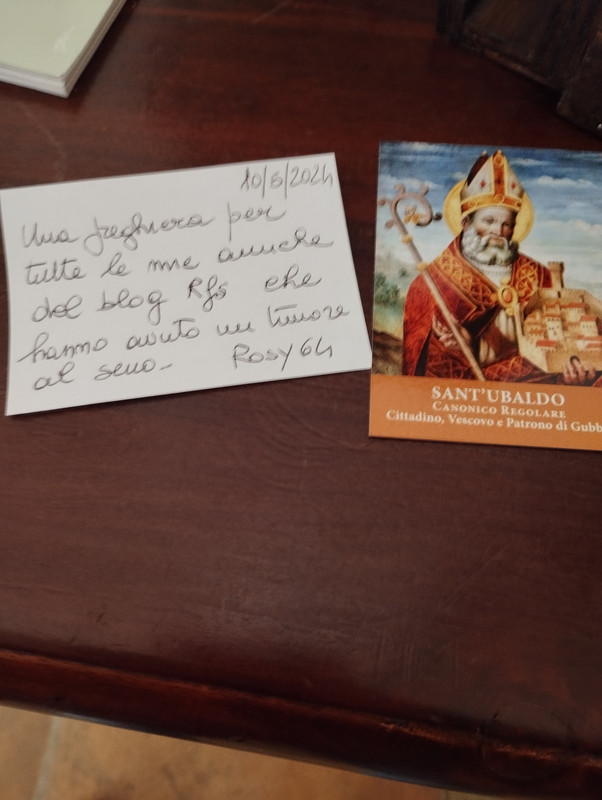 10/5/2024
Una preghiera per
tutte le mie amiche
del blog Rfs che
hanno avuto un tumore
al seno-
Rosy64
SANT'UBALDO
CANONICO REGOLARE
Cittadino, Vescovo e Patrono di Gubb